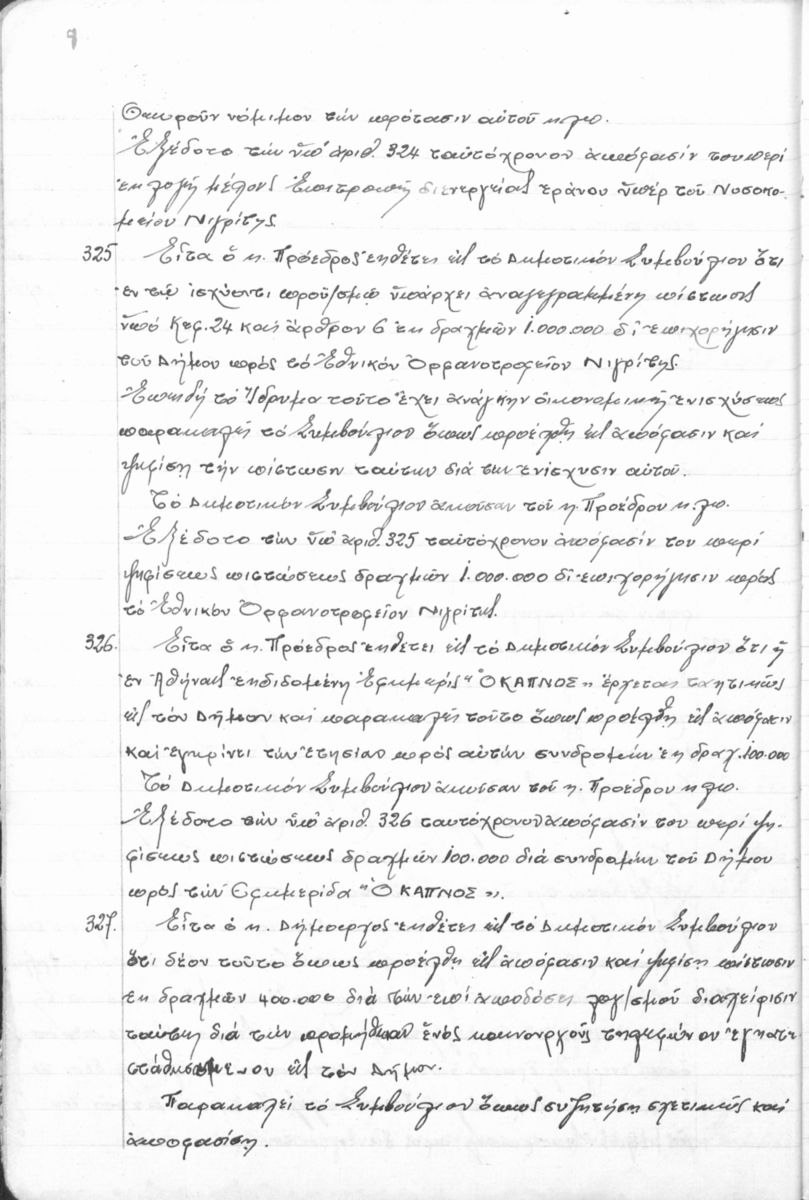 9
Θεωροῦν νόμιμον τήν πρότασιν αὐτοῦ κ.λ.π.
Ἐξέδοτο τήν ὑπ' ἀριθ. 324 ταὐτόχρονον ἀπόφασίν του περί
ἐκλογῆς μέλους Ἐπιτροπῆς διενεργείας ἐράνου ὑπέρ τοῦ Νοσοκο-
μείου Νιγρίτης.
325 Εἶτα ὁ κ. Πρόεδρος ἐκθέτει εἰς τό Δημοτικόν Συμβούλιον ὅτι
ἐν τῷ ἰσχύοντι προϋ/σμῷ ὑπάρχει ἀναγεγραμμένη πίστωσις
ὑπό Κεφ. 24 καί ἄρθρον 6 ἐκ δραχμῶν 1.000.000 δι' ἐπιχορήγησιν
τοῦ Δήμου πρός τό Ἐθνικόν Ὀρφανοτροφεῖον Νιγρίτης.
Ἐπειδή τό Ἵδρυμα τοῦτο ἔχει ἀνάγκην οἰκονομικῆς ἐνισχύσεως
παρακαλεῖ τό Συμβούλιον ὅπως προέλθῃ εἰς ἀπόφασιν καί
ψηφίσῃ τήν πίστωσιν ταύτην διά τήν ἐνίσχυσιν αὐτοῦ.
Τό Δημοτικόν Συμβούλιον ἀκοῦσαν τοῦ κ. Προέδρου κ.λ.π.
Ἐξέδοτο τήν ὑπ' ἀριθ. 325 ταὐτόχρονον ἀπόφασίν του περί
ψηφίσεως πιστώσεως δραχμῶν 1.000.000 δι' ἐπιχορήγησιν πρός
τό Ἐθνικόν Ὀρφανοτροφεῖον Νιγρίτης.
326. Εἶτα ὁ κ. Πρόεδρος ἐκθέτει εἰς τό Δημοτικόν Συμβούλιον ὅτι ἡ
ἐν Ἀθήναις ἐκδιδομένη Ἐφημερίς "Ὁ ΚΑΠΝΟΣ" ἔρχεται τακτικῶς
εἰς τόν Δῆμον καί παρακαλεῖ τοῦτο ὅπως προέλθῃ εἰς ἀπόφασιν
καί ἐγκρίνει τήν ἐτησίαν πρός αὐτήν συνδρομήν ἐκ δραχ. 100.000
Τό Δημοτικόν Συμβούλιον ἀκοῦσαν τοῦ κ. Προέδρου κ.λ.π.
Ἐξέδοτο τήν ὑπ' ἀριθ. 326 ταὐτόχρονον ἀπόφασίν του περί ψη-
φίσεως πιστώσεως δραχμῶν 100.000 διά συνδρομήν τοῦ Δήμου
πρός τήν Ἐφημερίδα "Ὁ ΚΑΠΝΟΣ".
327. Εἶτα ὁ κ. Δήμαρχος ἐκθέτει εἰς τό Δημοτικόν Συμβούλιον
ὅτι δέον τοῦτο ὅπως προέλθῃ εἰς ἀπόφασιν καί ψηφίσῃ πίστωσιν
ἐκ δραχμῶν 400.000 διά τήν ἐπί ἀποδόσει λογ/σμοῦ διαχείρισιν
ταύτης διά τήν προμήθειαν ἑνός καινουργοῦς τηλεφώνου ἐγκατε-
στάθησομένου εἰς τόν Δῆμον.
Παρακαλεῖ τό Συμβούλιον ὅπως συζητήσῃ σχετικῶς καί
ἀποφασίσῃ.